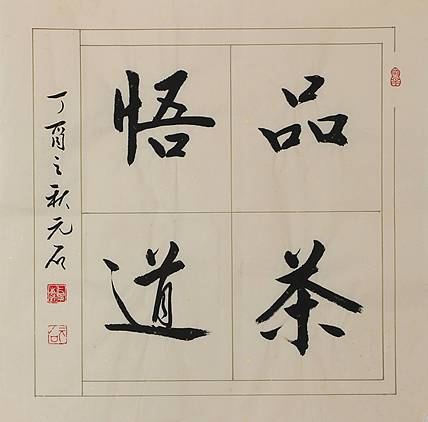 品茶
悟道
丁酉之秋元石